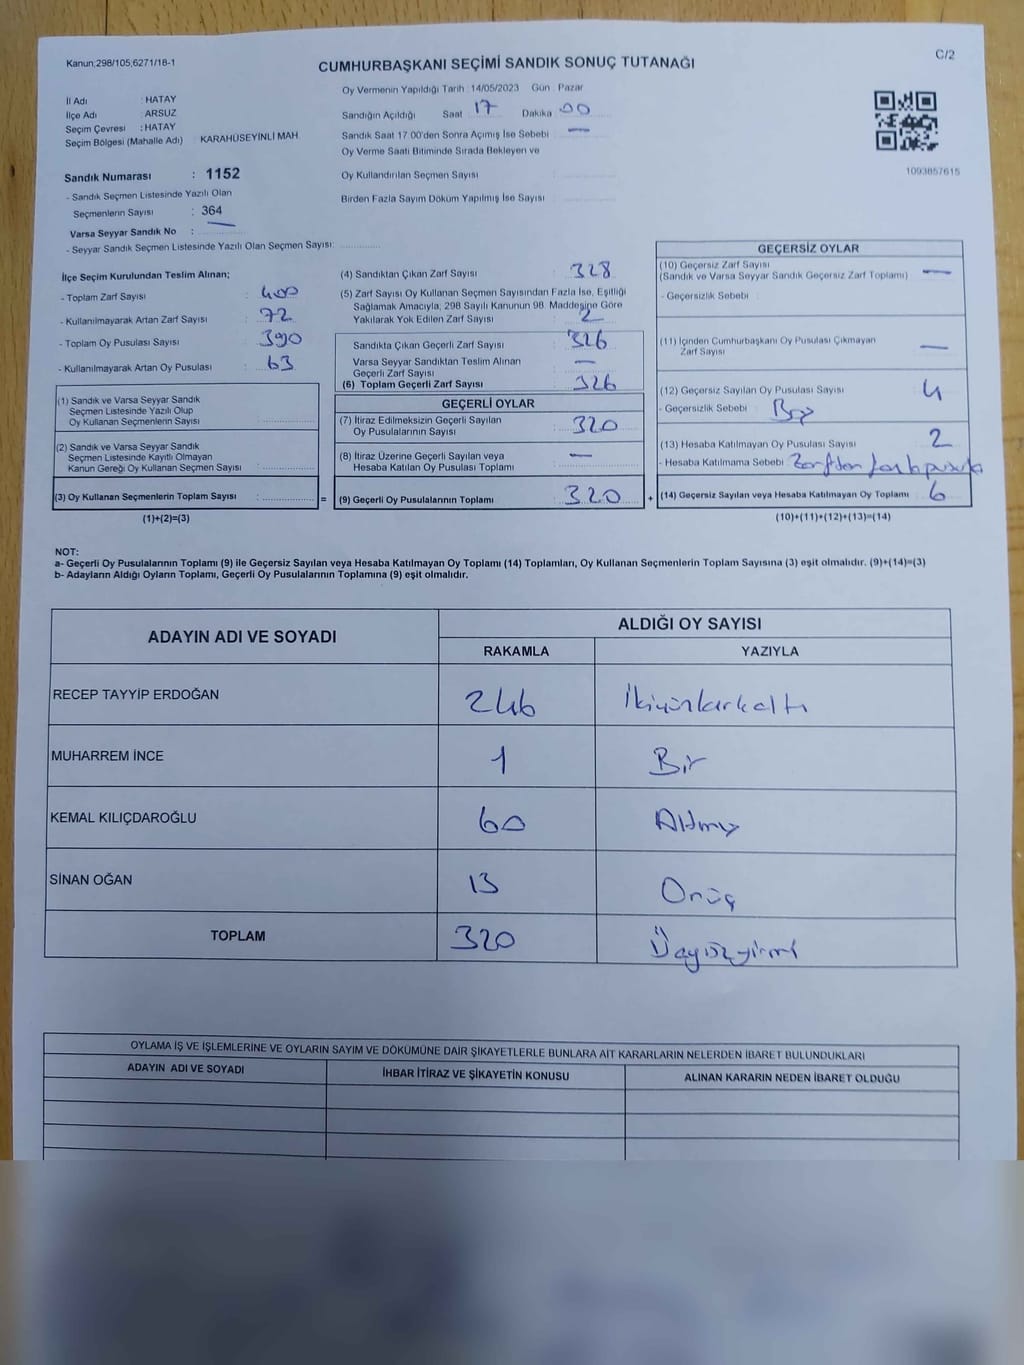 Kanun;298/105;6271/18-1
C/2
CUMHURBAŞKANI SEÇİMİ SANDIK SONUÇ TUTANAĞI
İl Adı : HATAY
İlçe Adı : ARSUZ
Seçim Çevresi : HATAY
Seçim Bölgesi (Mahalle Adı) KARAHÜSEYİNLİ MAH.
Sandık Numarası : 1152
- Sandık Seçmen Listesinde Yazılı Olan
Seçmenlerin Sayısı : 364
Varsa Seyyar Sandık No : —
- Seyyar Sandık Seçmen Listesinde Yazılı Olan Seçmen Sayısı:
Oy Vermenin Yapıldığı Tarih : 14/05/2023 Gün : Pazar
Sandığın Açıldığı Saat 17 Dakika 00
Sandık Saat 17:00'den Sonra Açılmış İse Sebebi : —
Oy Verme Saati Bitiminde Sırada Bekleyen ve
Oy Kullandırılan Seçmen Sayısı :
Birden Fazla Sayım Döküm Yapılmış İse Sayısı :
1093857615
İlçe Seçim Kurulundan Teslim Alınan;
- Toplam Zarf Sayısı : 400
- Kullanılmayarak Artan Zarf Sayısı : 72
- Toplam Oy Pusulası Sayısı : 390
- Kullanılmayarak Artan Oy Pusulası : 63
(1) Sandık ve Varsa Seyyar Sandık
Seçmen Listesinde Yazılı Olup
Oy Kullanan Seçmenlerin Sayısı :
(2) Sandık ve Varsa Seyyar Sandık
Seçmen Listesinde Kayıtlı Olmayan
Kanun Gereği Oy Kullanan Seçmen Sayısı :
(3) Oy Kullanan Seçmenlerin Toplam Sayısı : =
(1)+(2)=(3)
(4) Sandıktan Çıkan Zarf Sayısı : 328
(5) Zarf Sayısı Oy Kullanan Seçmen Sayısından Fazla İse, Eşitliği
Sağlamak Amacıyla, 298 Sayılı Kanunun 98. Maddesine Göre
Yakılarak Yok Edilen Zarf Sayısı : 2
Sandıkta Çıkan Geçerli Zarf Sayısı : 326
Varsa Seyyar Sandıktan Teslim Alınan
Geçerli Zarf Sayısı : —
(6) Toplam Geçerli Zarf Sayısı : 326
GEÇERLİ OYLAR
(7) İtiraz Edilmeksizin Geçerli Sayılan
Oy Pusulalarının Sayısı : 320
(8) İtiraz Üzerine Geçerli Sayılan veya
Hesaba Katılan Oy Pusulası Toplamı : —
(9) Geçerli Oy Pusulalarının Toplamı : 320 +
GEÇERSİZ OYLAR
(10) Geçersiz Zarf Sayısı
(Sandık ve Varsa Seyyar Sandık Geçersiz Zarf Toplamı) —
- Geçersizlik Sebebi :
(11) İçinden Cumhurbaşkanı Oy Pusulası Çıkmayan
Zarf Sayısı —
(12) Geçersiz Sayılan Oy Pusulası Sayısı : 4
- Geçersizlik Sebebi : Boş
(13) Hesaba Katılmayan Oy Pusulası Sayısı : 2
- Hesaba Katılmama Sebebi : Zarftan fazla pusula
(14) Geçersiz Sayılan veya Hesaba Katılmayan Oy Toplamı : 6
(10)+(11)+(12)+(13)=(14)
NOT:
a- Geçerli Oy Pusulalarının Toplamı (9) ile Geçersiz Sayılan veya Hesaba Katılmayan Oy Toplamı (14) Toplamları, Oy Kullanan Seçmenlerin Toplam Sayısına (3) eşit olmalıdır. (9)+(14)=(3)
b- Adayların Aldığı Oyların Toplamı, Geçerli Oy Pusulalarının Toplamına (9) eşit olmalıdır.
ADAYIN ADI VE SOYADI ALDIĞI OY SAYISI
RAKAMLA YAZIYLA
RECEP TAYYİP ERDOĞAN 246 İkiyüzkırkaltı
MUHARREM İNCE 1 Bir
KEMAL KILIÇDAROĞLU 60 Altmış
SİNAN OĞAN 13 Onüç
TOPLAM 320 Üçyüzyirmi
OYLAMA İŞ VE İŞLEMLERİNE VE OYLARIN SAYIM VE DÖKÜMÜNE DAİR ŞİKAYETLERLE BUNLARA AİT KARARLARIN NELERDEN İBARET BULUNDUKLARI
ADAYIN ADI VE SOYADI İHBAR İTİRAZ VE ŞİKAYETİN KONUSU ALINAN KARARIN NEDEN İBARET OLDUĞU